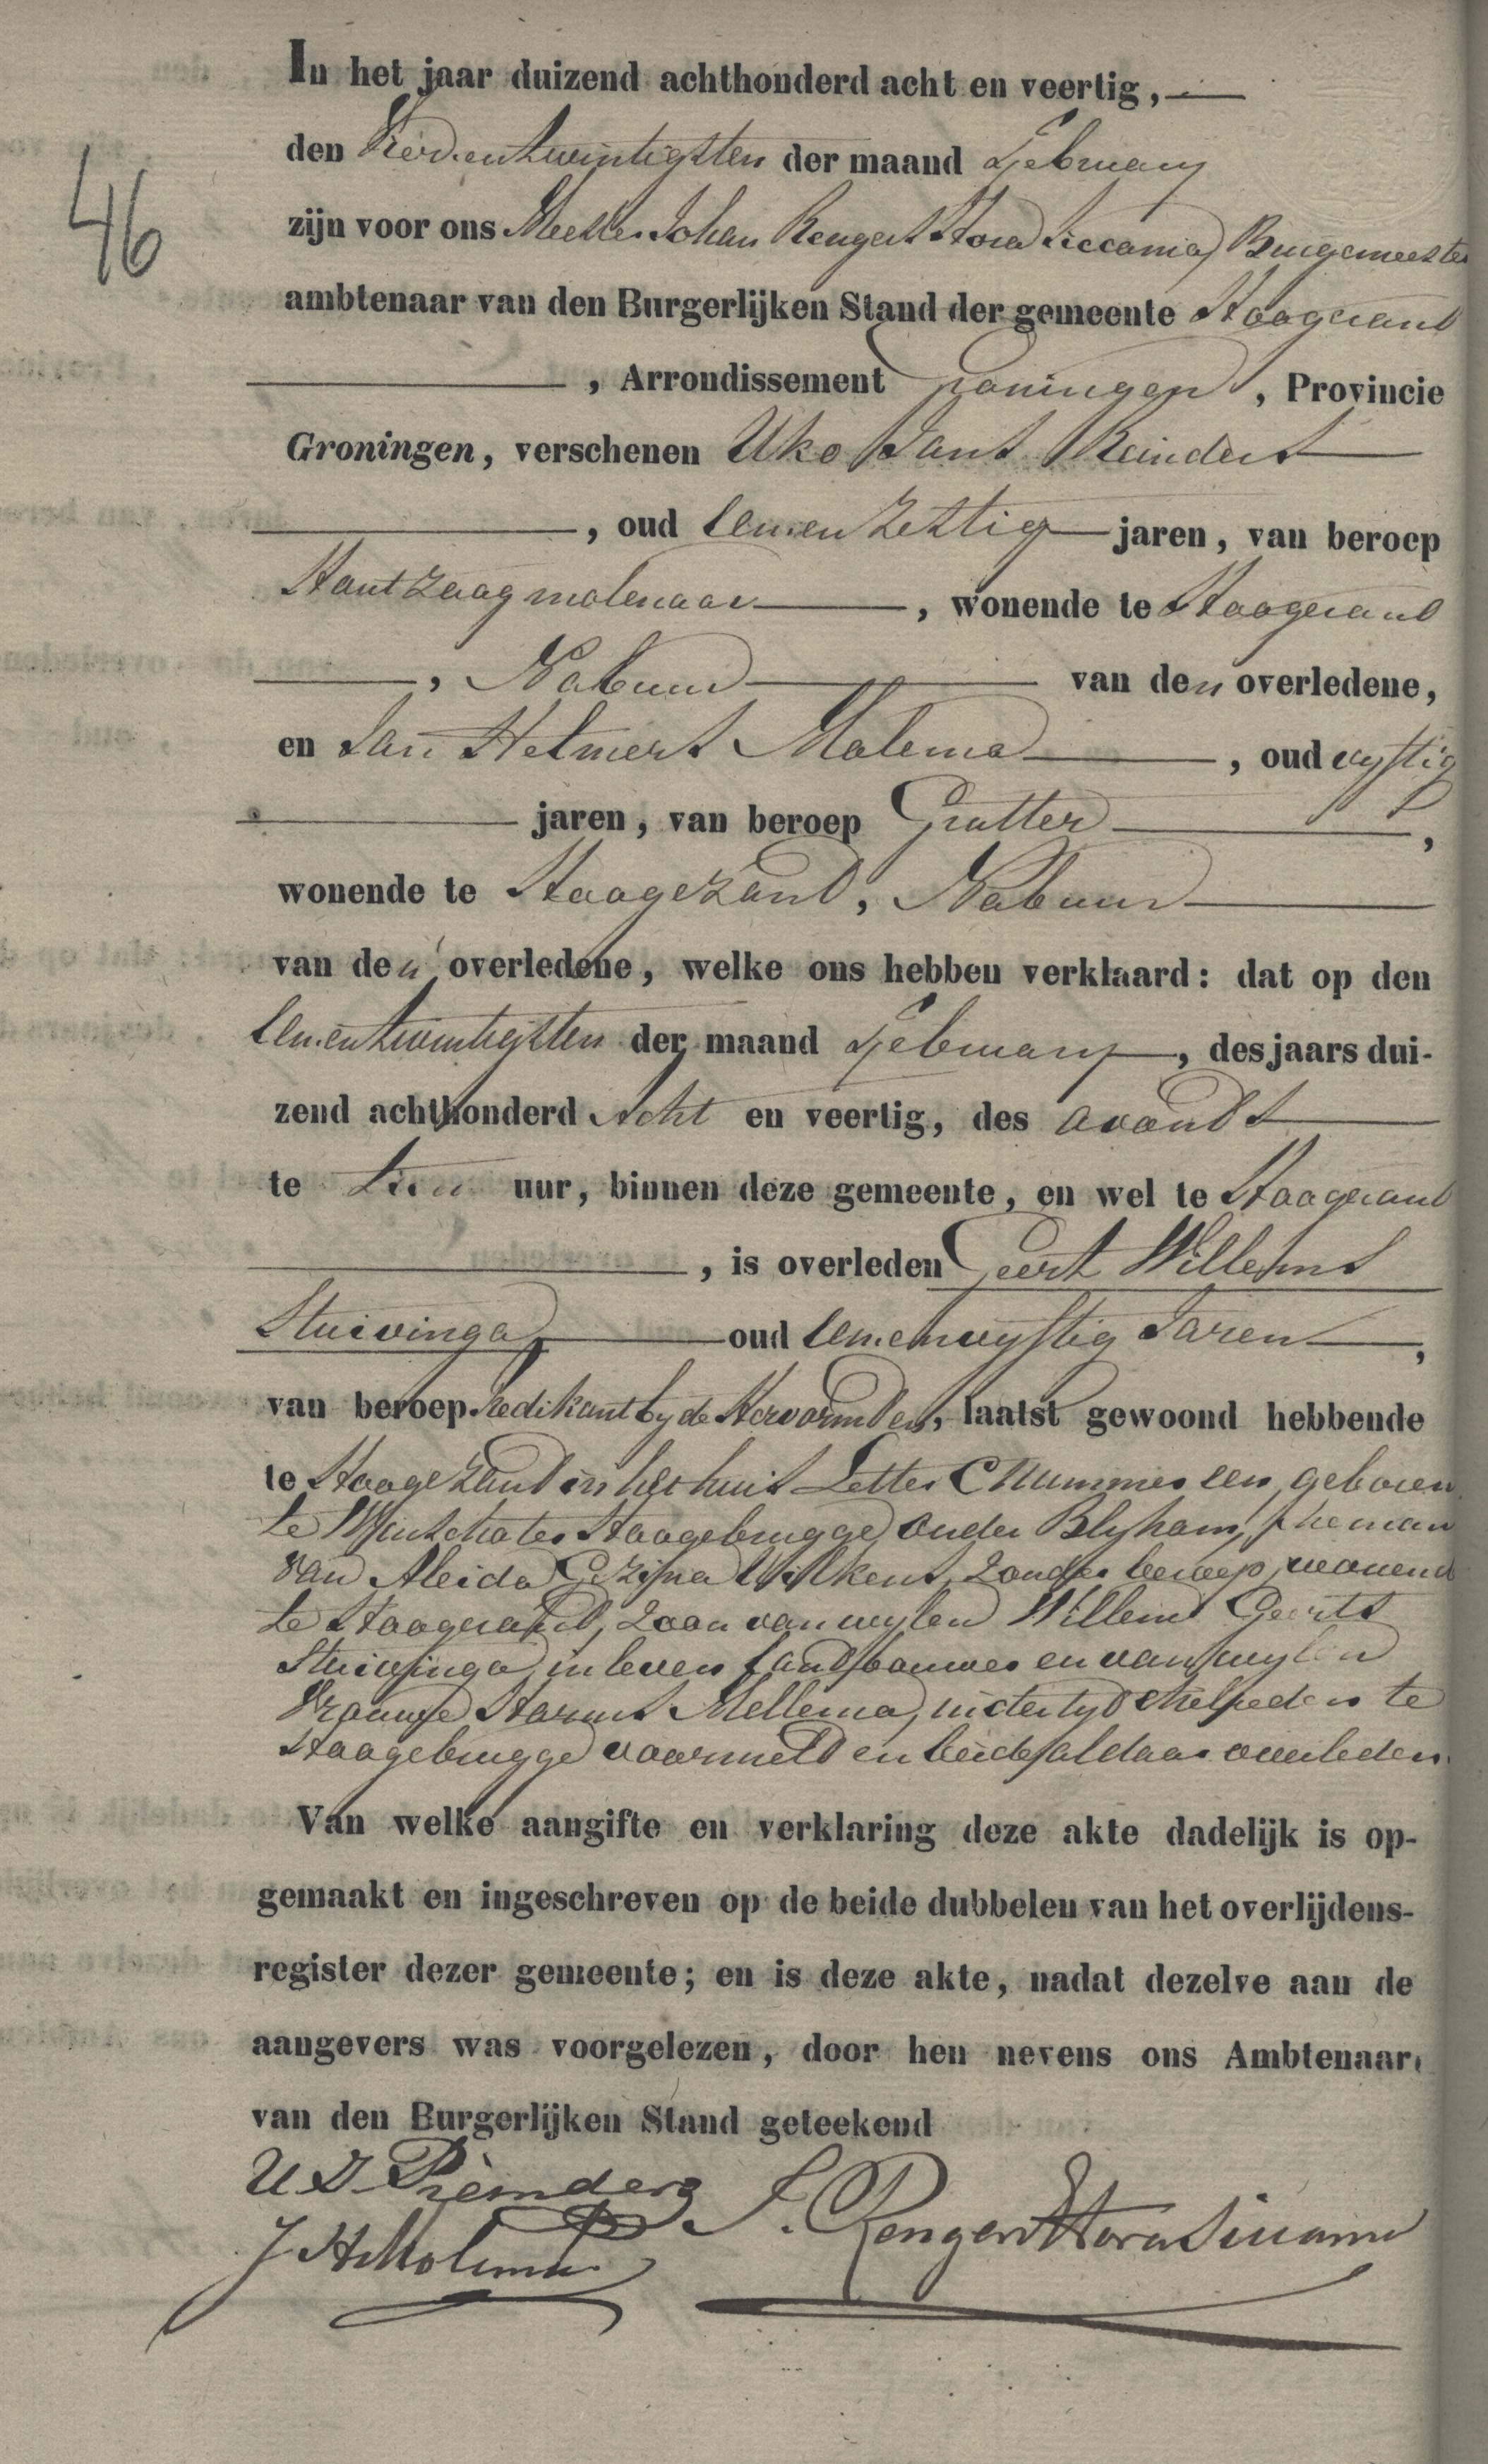 46
In het jaar duizend achthonderd acht en veertig,
den vierentwintigsten der maand February
zijn voor ons Meester Johan Rengers Hora Siccama, Burgemeester
ambtenaar van den Burgerlijken Stand der gemeente Hoogezand
, Arrondissement Groningen, Provincie
Groningen, verschenen Uko Jans Reinders
, oud eenenzestig jaren, van beroep
Houtzaagmolenaar, wonende te Hoogezand
, Nabuur van den overledene,
en Jan Helmers Molema, oud vyftig
jaren, van beroep Grutter,
wonende te Hoogezand, Nabuur
van den overledene, welke ons hebben verklaard: dat op den
eenentwintigsten der maand February, des jaars dui-
zend achthonderd acht en veertig, des avonds
te tien uur, binnen deze gemeente, en wel te Hoogezand
, is overleden Geert Willems
Stuivinga oud eenenvyftig Jaren,
van beroep Predikant by de Hervormden, laatst gewoond hebbende
te Hoogezand in het huis Letter C Nummer een, geboren
te Winschoter Hoogebrugge onder Blyham, man
van Aleida Gezina Wilkens, zonder beroep, wonend
te Hoogezand, zoon van wylen Willem Geerts
Stuivinga, in leven Landbouwer en van wylen
Vrouwe Harms Mellema, te
Hoogebrugge voormeld en beide aldaar overleden.
Van welke aangifte en verklaring deze akte dadelijk is op-
gemaakt en ingeschreven op de beide dubbelen van het overlijdens-
register dezer gemeente; en is deze akte, nadat dezelve aan de
aangevers was voorgelezen, door hen nevens ons Ambtenaar
van den Burgerlijken Stand geteekend
U J Reinders J. Rengers Hora Siccama
J H Molema